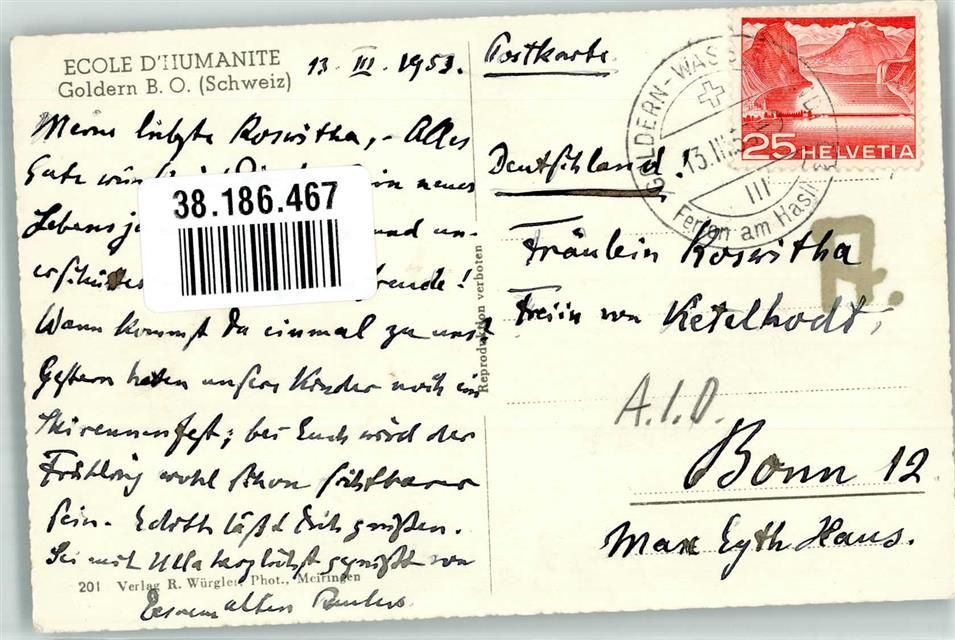 ECOLE D'HUMANITE
Goldern B. O. (Schweiz)
13. III. 1953.
Meine liebste Roswitha, - Alles
Gute
in neues
Lebensj
und un-
erschütt
freude!
Wann kommst Du einmal zu uns?
Gestern hatten unsere Kinder noch ein
Skirennenfest; bei Euch wird der
Frühling wohl schon sichtbarer
sein. Edith läßt Dich grüßen.
Sei mit Ulla herzlichst gegrüßt von
Eurem alten Paulus.
201 Verlag R. Würgler, Phot., Meiringen
38.186.467
Reproduktion verboten
Postkarte
25 HELVETIA
GOLDERN-WASS
13.III.
Ferien am Hasli
Deutschland!
Fräulein Roswitha
Freiin von Ketelhodt,
A.I.D.
Bonn 12
Max Eyth Haus.
A.